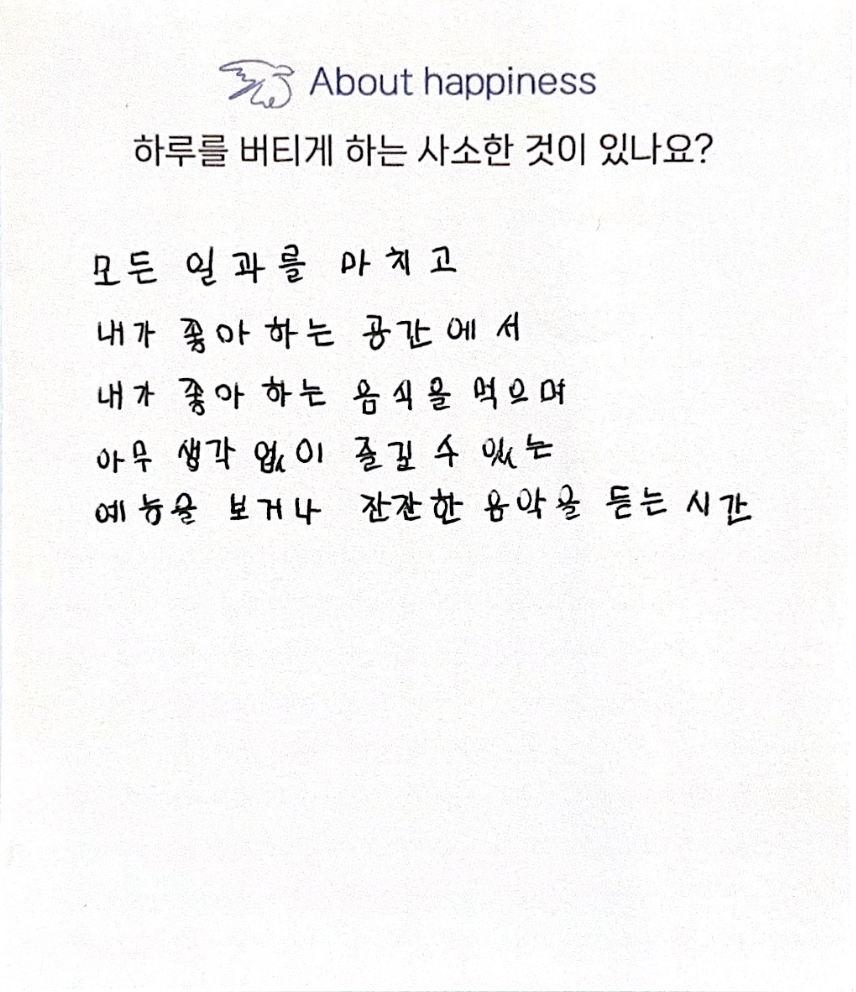 About happiness
하루를 버티게 하는 사소한 것이 있나요?
모든 일과를 마치고
내가 좋아하는 공간에서
내가 좋아하는 음식을 먹으며
아무 생각 없이 즐길 수 있는
예능을 보거나 잔잔한 음악을 듣는 시간